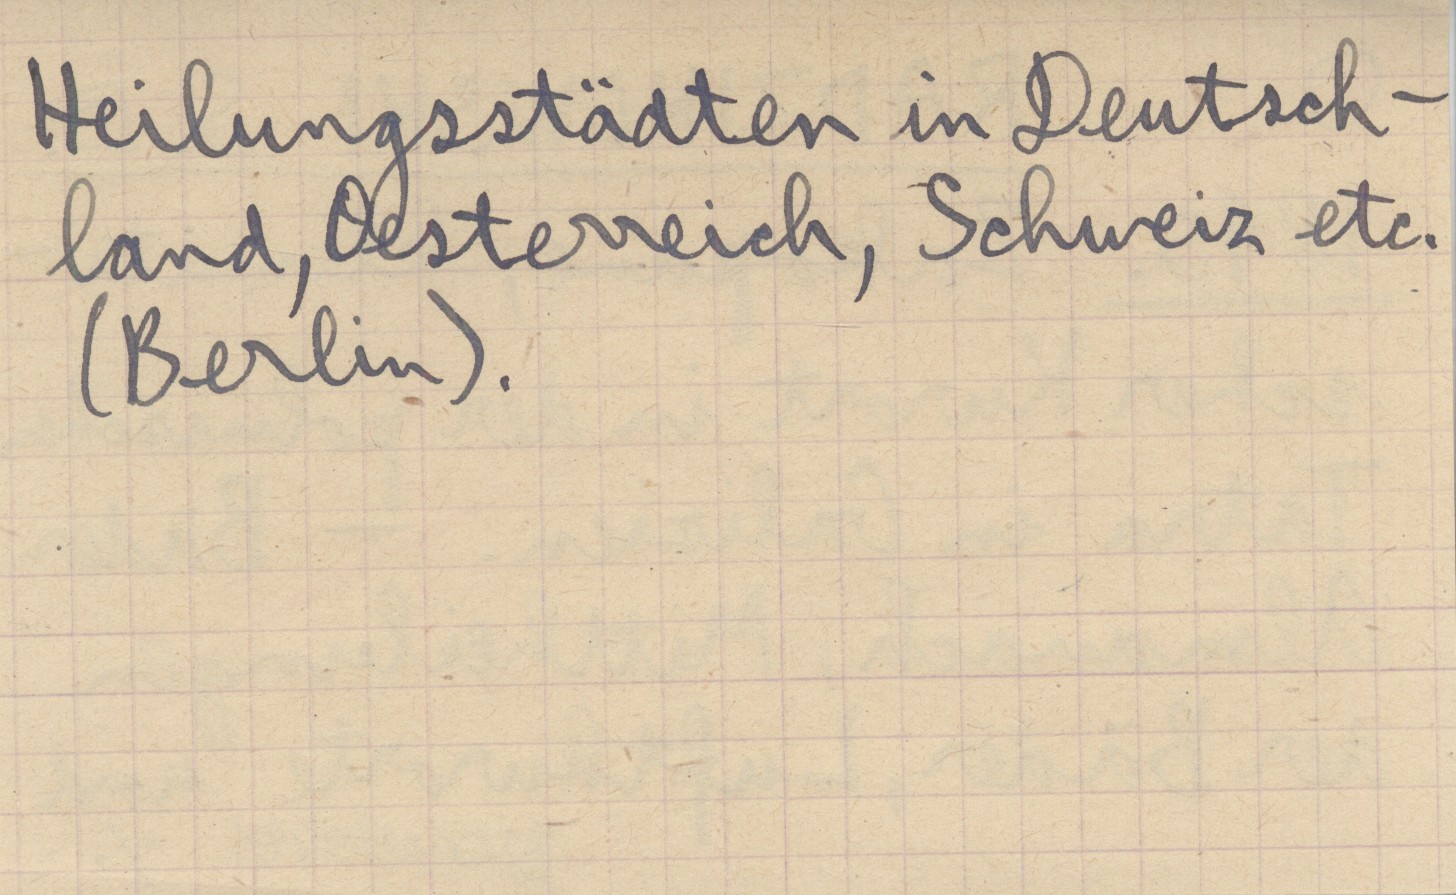 Heilungsstädten in Deutsch-
land, Oesterreich, Schweiz etc.
(Berlin).